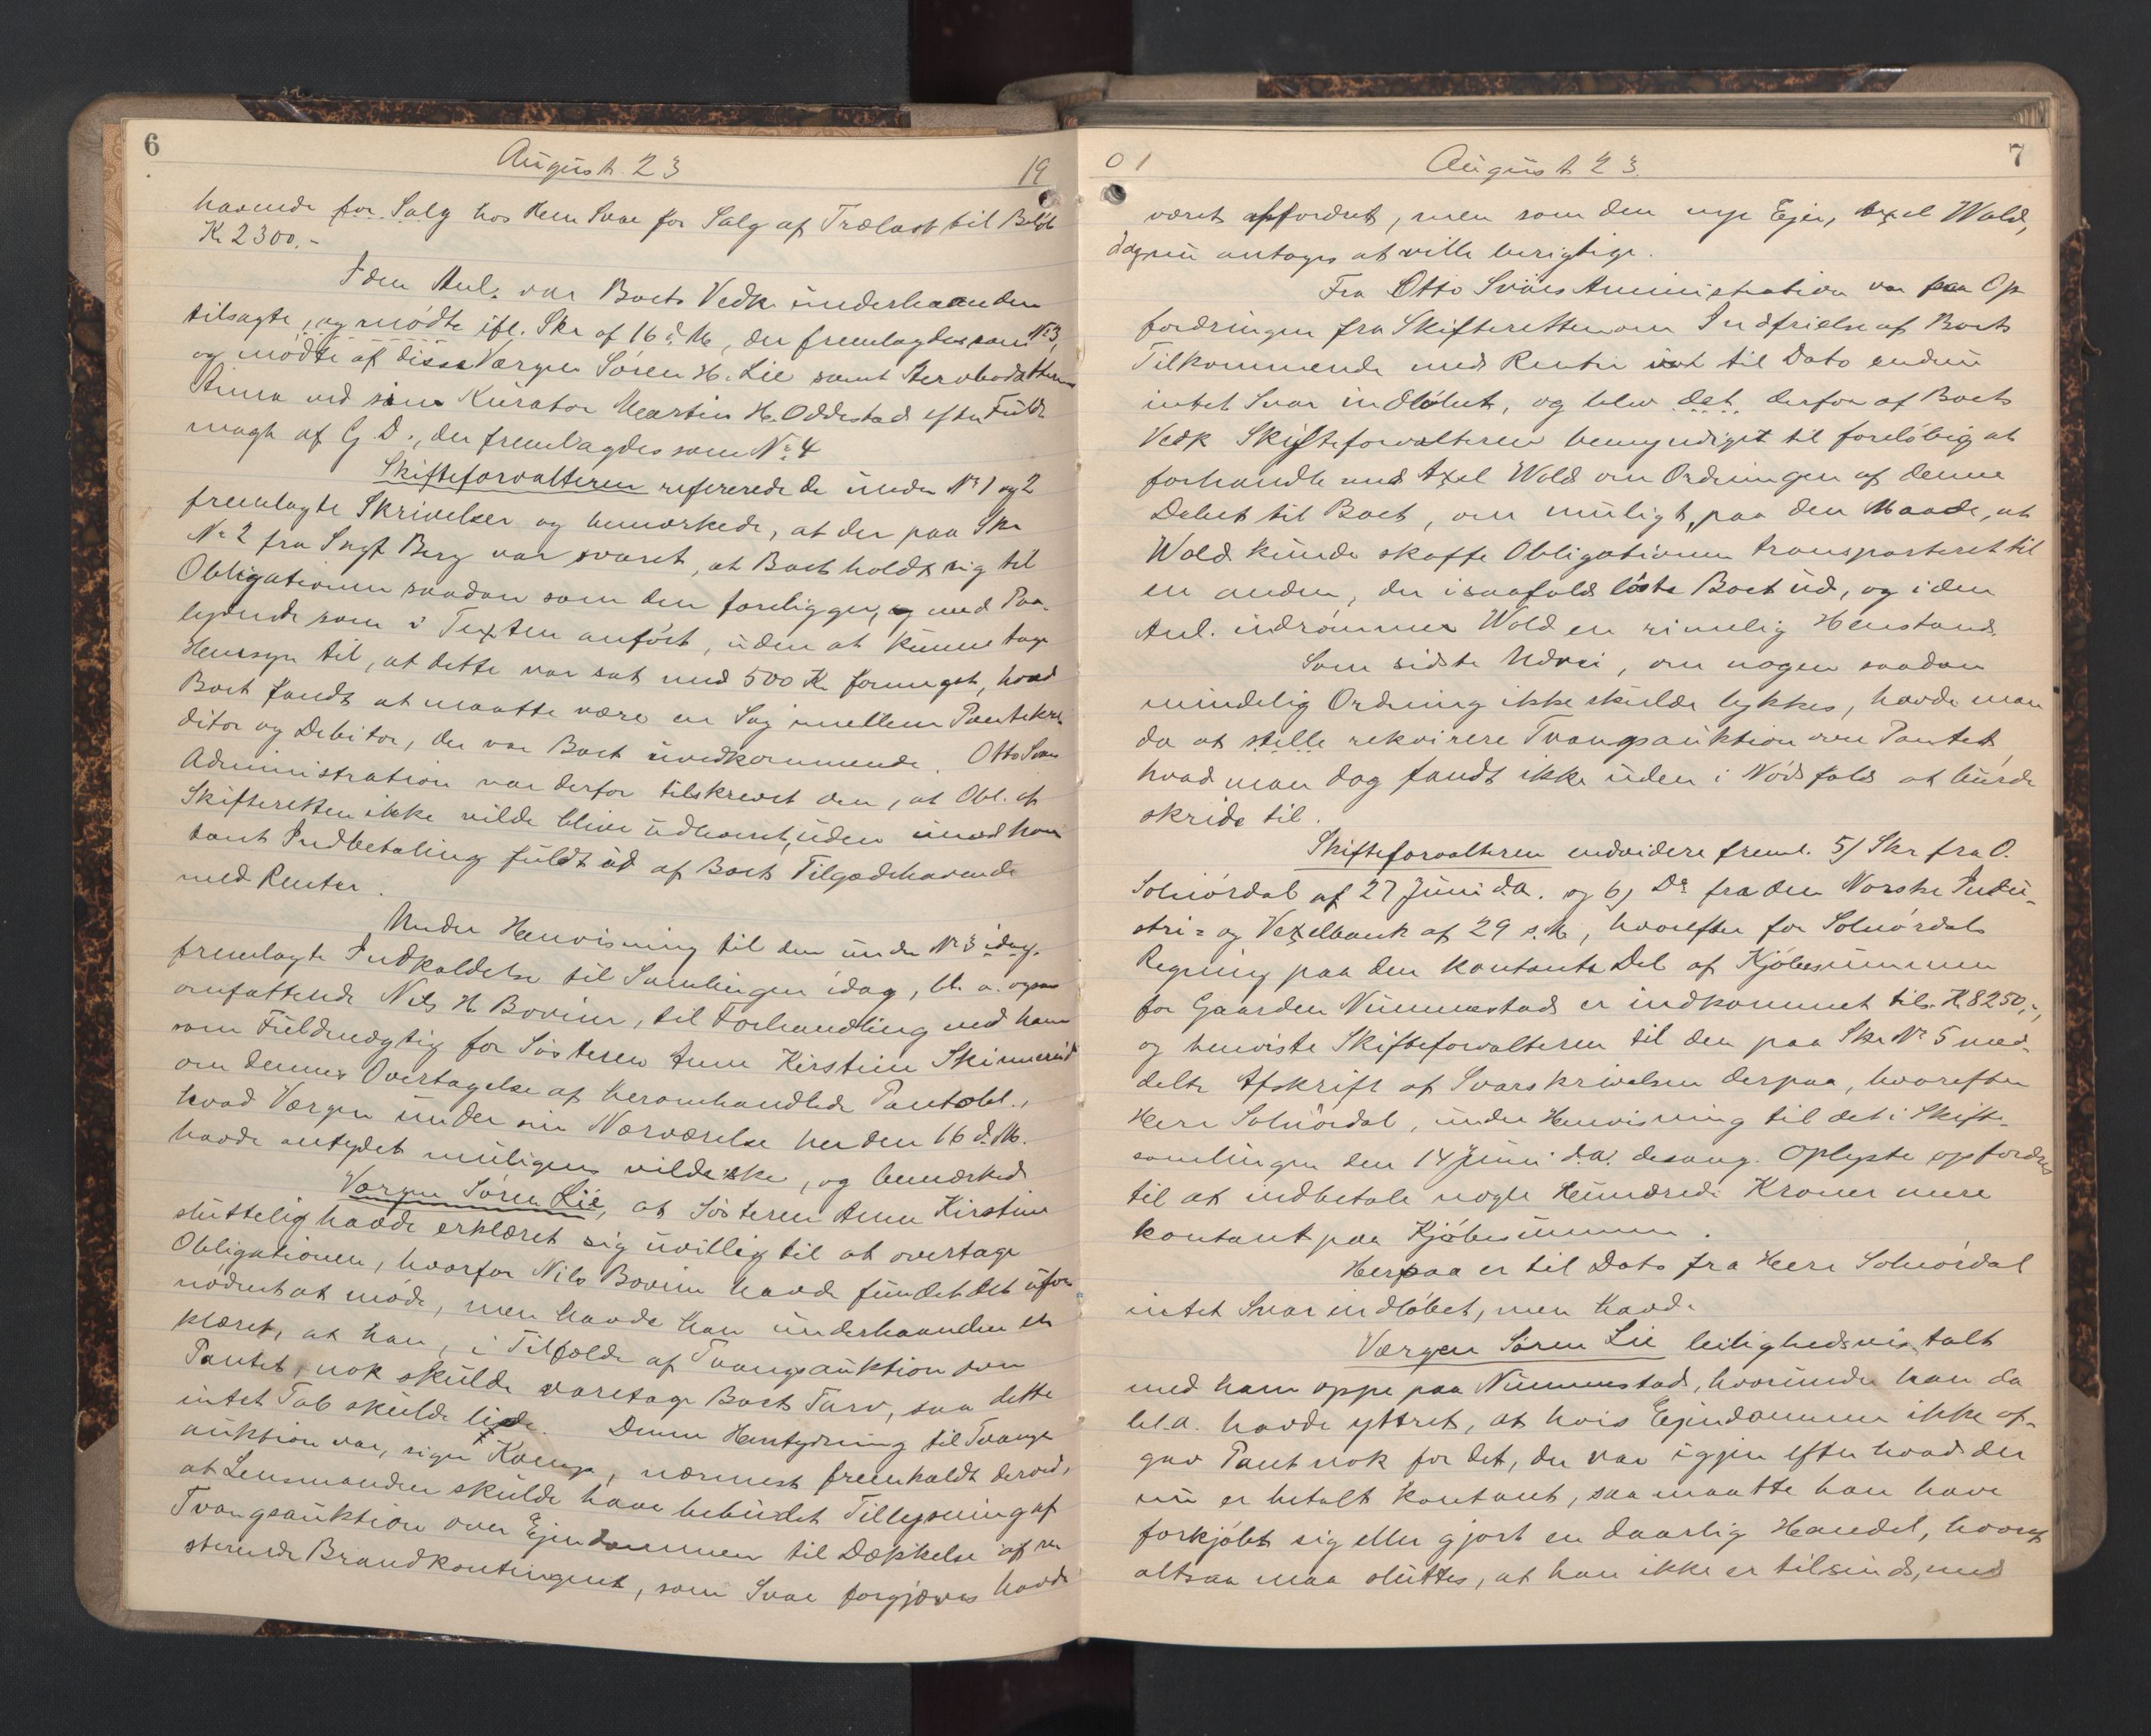 6
August 23
19
havende for Salg hos Herr Svae for Salg af Trælast til Beløb
Kr 2300,-
I den Anl. var Boets Vedk underhaanden
tilsagte, og mødte ifl. Skr af 16 d. M, der fremlagdes som No 3,
og mødte af disse Værgen Søren H. Lie samt Stervbodatteren
Anna ved sin Kurator Martin H. Oddestad efter Fuld-
magt af G. D., der fremlagdes som No 4
Skifteforvalteren refererede de under No 1 og 2
fremlagte Skrivelser og bemærkede, at der paa Skr
No 2 fra Sagf Berg var svaret, at Boet holdt sig til
Obligationen saadan som den foreligger, og med Paa-
lydende som i Texten anført, uden at kunne tage
Hensyn til, at dette var sat med 500 Kr formeget, hvad
Boet fandt at maatte være en Sag mellem Pantekre-
ditor og Debitor, der var Boet uvedkommende. Otto Svaes
Administration var derfor tilskrevet om, at Obl. af
Skifteretten ikke vilde blive udleveret, uden imod kon-
tant Indbetaling fuldt ud af Boets Tilgodehavende
med Renter.
Under Henvisning til den under No 3 idag
fremlagte Indkaldelse til Samlingen idag, bl. a. ogsaa
omfattende Nils H Bovim, til Forhandling med ham
som Fuldmægtig for Søsteren Anne Kirstine Skinnerud
om dennes Overtagelse af heromhandlede Pantobl.,
hvad Værgen under sin Nærværelse her den 16 d. M.
havde antydet muligens vilde ske, og bemærkede
Værgen Søren Lie, at Søsteren Anne Kirstine
sluttelig havde erklæret sig uvillig til at overtage
Obligationen, hvorfor Nils Bovim havde fundet det ufor-
nødent at møde, men havde han underhaanden er-
klæret, at han, i Tilfælde af Tvangsauktion over
Pantet, nok skulde varetage Boets Tarv, saa dette
intet Tab skulde lide. Denne Hentydning til Tvangs
auktion var, siger Komp, nærmest fremholdt derved,
at Lensmanden skulde have bebudet Tillysning af
Tvangsauktion over Ejendommen til Dækkelse af re-
sterende Brandkontingent, som Svae forgjæves havde
01
August 23.
7
været affordret, men som den nye Ejer, Axel Wold,
dog nu antages at ville berigtige.
Fra Otto Svaes Administration var paa Op-
fordringen fra Skifteretten om Indfrielse af Boets
Tilkommende med Renter til Dato endnu
intet Svar indløbet, og blev det derfor af Boets
Vedk Skifteforvalteren bemyndiget til foreløbig at
forhandle med Axel Wold om Ordningen af denne
Debet til Boet, om muligt, paa den Maade, at
Wold kunde skaffe Obligationen transporteret til
en anden, der isaafald løste Boet ud, og i den
Anl. indrømmes Wold en rimelig Henstand.
Som sidste Udvei, om nogen saadan
mindelig Ordning ikke skulde lykkes, havde man
da at stille rekvirere Tvangsauktion over Pantet,
hvad man dog fandt ikke uden i Nødsfald at burde
skride til.
Skifteforvalteren endvidere freml. 5/ Skr fra O.
Solnørdal af 27 Juni d.A. og 6) Do fra den Norske Indu-
stri= og Vexelbank af 29 s.M, hvorefter for Solnørdals
Regning paa den kontante Del af Kjøbesummen
for Gaarden Nummestad er indkommet tils. K 8250,-,
og henviste Skifteforvalteren til den paa Skr No 5 med-
delte Afskrift af Svarskrivelsen derpaa, hvorefter
Herr Solnørdal, under Henvisning til det i Skifte-
samlingen den 14 Juni d.A. desang. Oplyste opfordres
til at indbetale nogle Hundrede Kroner mere
kontant paa Kjøbesummen.
Herpaa er til Dato fra Herr Solnørdal
intet Svar indløbet, men havde
Værgen Søren Lie leilighedsvis talt
med ham oppe paa Nummestad, hvorunder han da
bl.a. havde yttret, at hvis Ejendommen ikke af-
gav Pant nok for det, der var igjen efter hvad der
nu er betalt kontant, saa maatte han have
forkjøbt sig eller gjort en daarlig Handel, hvoraf
altsaa maa sluttes, at han ikke er tilsinds, med